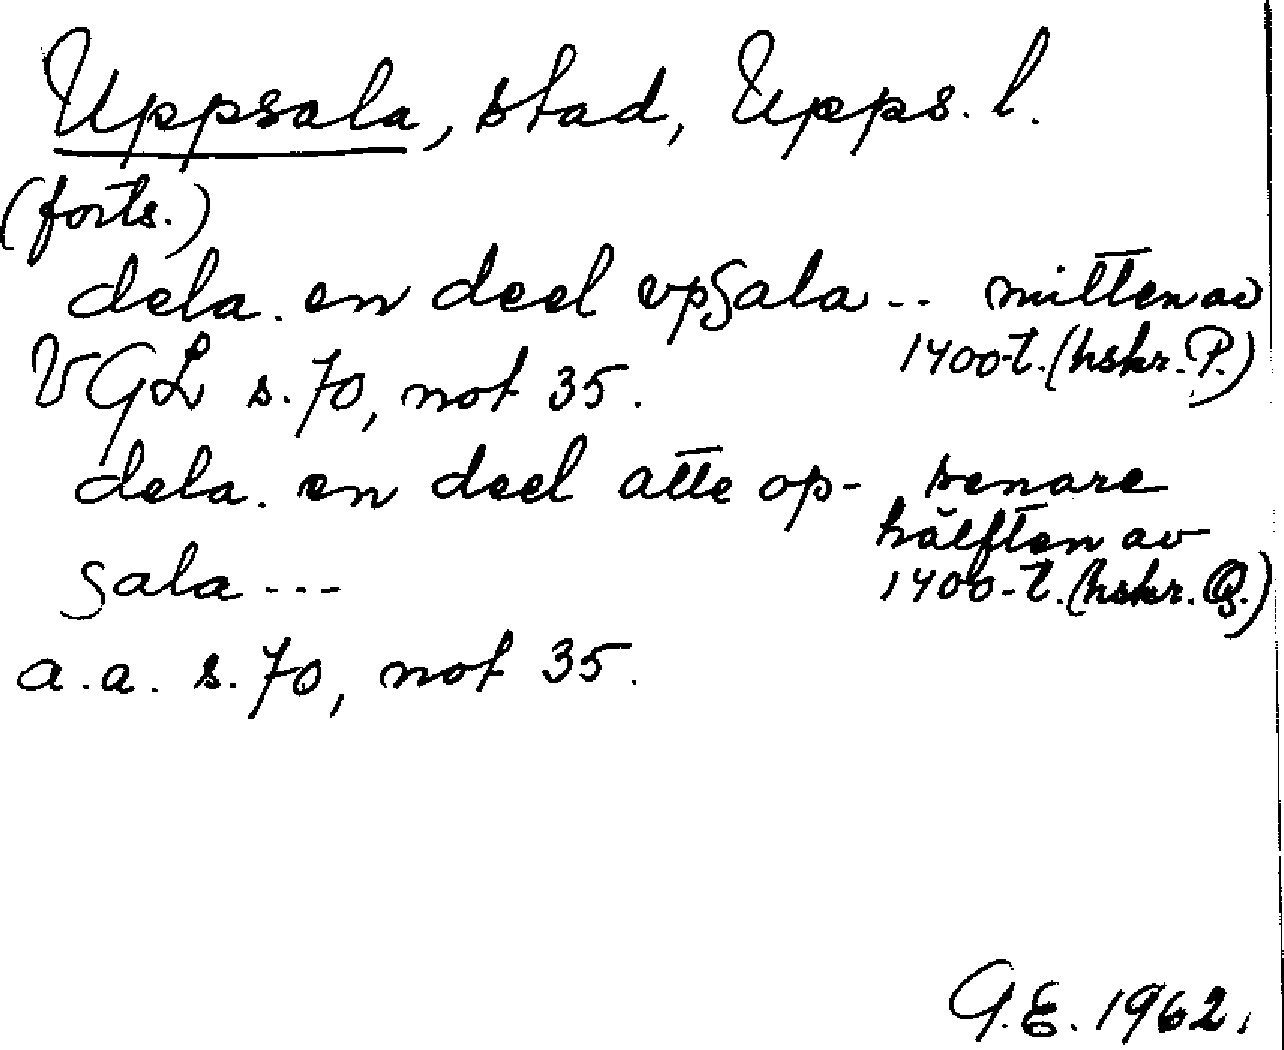 Uppsala, stad, Upps. l.
(forts.)
dela. en deel vpsala -- mitten av
1400-t. (hskr. P.)
VGL s. 70, not 35.
dela. en deel atte op- senare
hälften av
sala --- 1400-t. (hskr. Q.)
a.a. s. 70, not 35.
G.E. 1962.